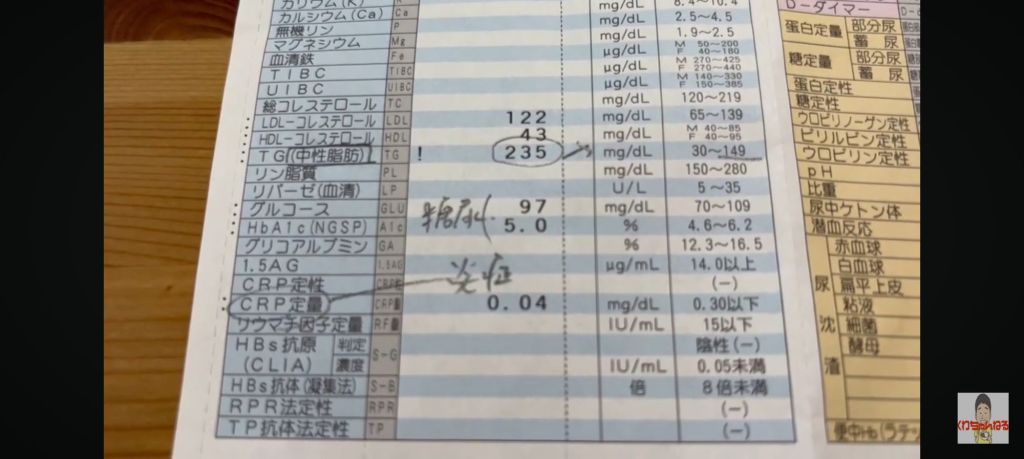 カリウム(K) mg/dL
カルシウム(Ca) Ca mg/dL 8.4～10.4
無機リン P mg/dL 2.5～4.5
マグネシウム Mg mg/dL 1.9～2.5
血清鉄 Fe μg/dL M 50～200 F 40～180
TIBC TIBC μg/dL M 270～425 F 270～440
UIBC UIBC μg/dL M 140～330 F 150～385
総コレステロール TC mg/dL 120～219
LDL-コレステロール LDL 122 mg/dL 65～139
HDL-コレステロール HDL 43 mg/dL M 40～85 F 40～95
TG(中性脂肪) TG ! 235 mg/dL 30～149
リン脂質 PL mg/dL 150～280
リパーゼ(血清) LP U/L 5～35
グルコース GLU 糖尿 97 mg/dL 70～109
HbA1c(NGSP) A1c 5.0 % 4.6～6.2
グリコアルブミン GA % 12.3～16.5
1.5AG 1.5AG μg/mL 14.0以上
CRP定性 炎症 (-)
CRP定量 CRP量 0.04 mg/dL 0.30以下
リウマチ因子定量 RF量 IU/mL 15以下
HBs抗原 判定 S-G 陰性(-)
(CLIA) 濃度 IU/mL 0.05未満
HBs抗体(凝集法) S-B 倍 8倍未満
RPR法定性 RPR (-)
TP抗体法定性 TP (-)
D-ダイマー
蛋白定量 部分尿
蓄尿
糖定量 部分尿
蓄尿
蛋白定性
糖定性
ウロビリノーゲン定性
ビリルビン定性
ウロビリン定性
pH
比重
尿中ケトン体
潜血反応
尿沈渣
赤血球
白血球
扁平上皮
粘液
細菌
酵母
便中Hb(ラテッ
くわちゃんねる